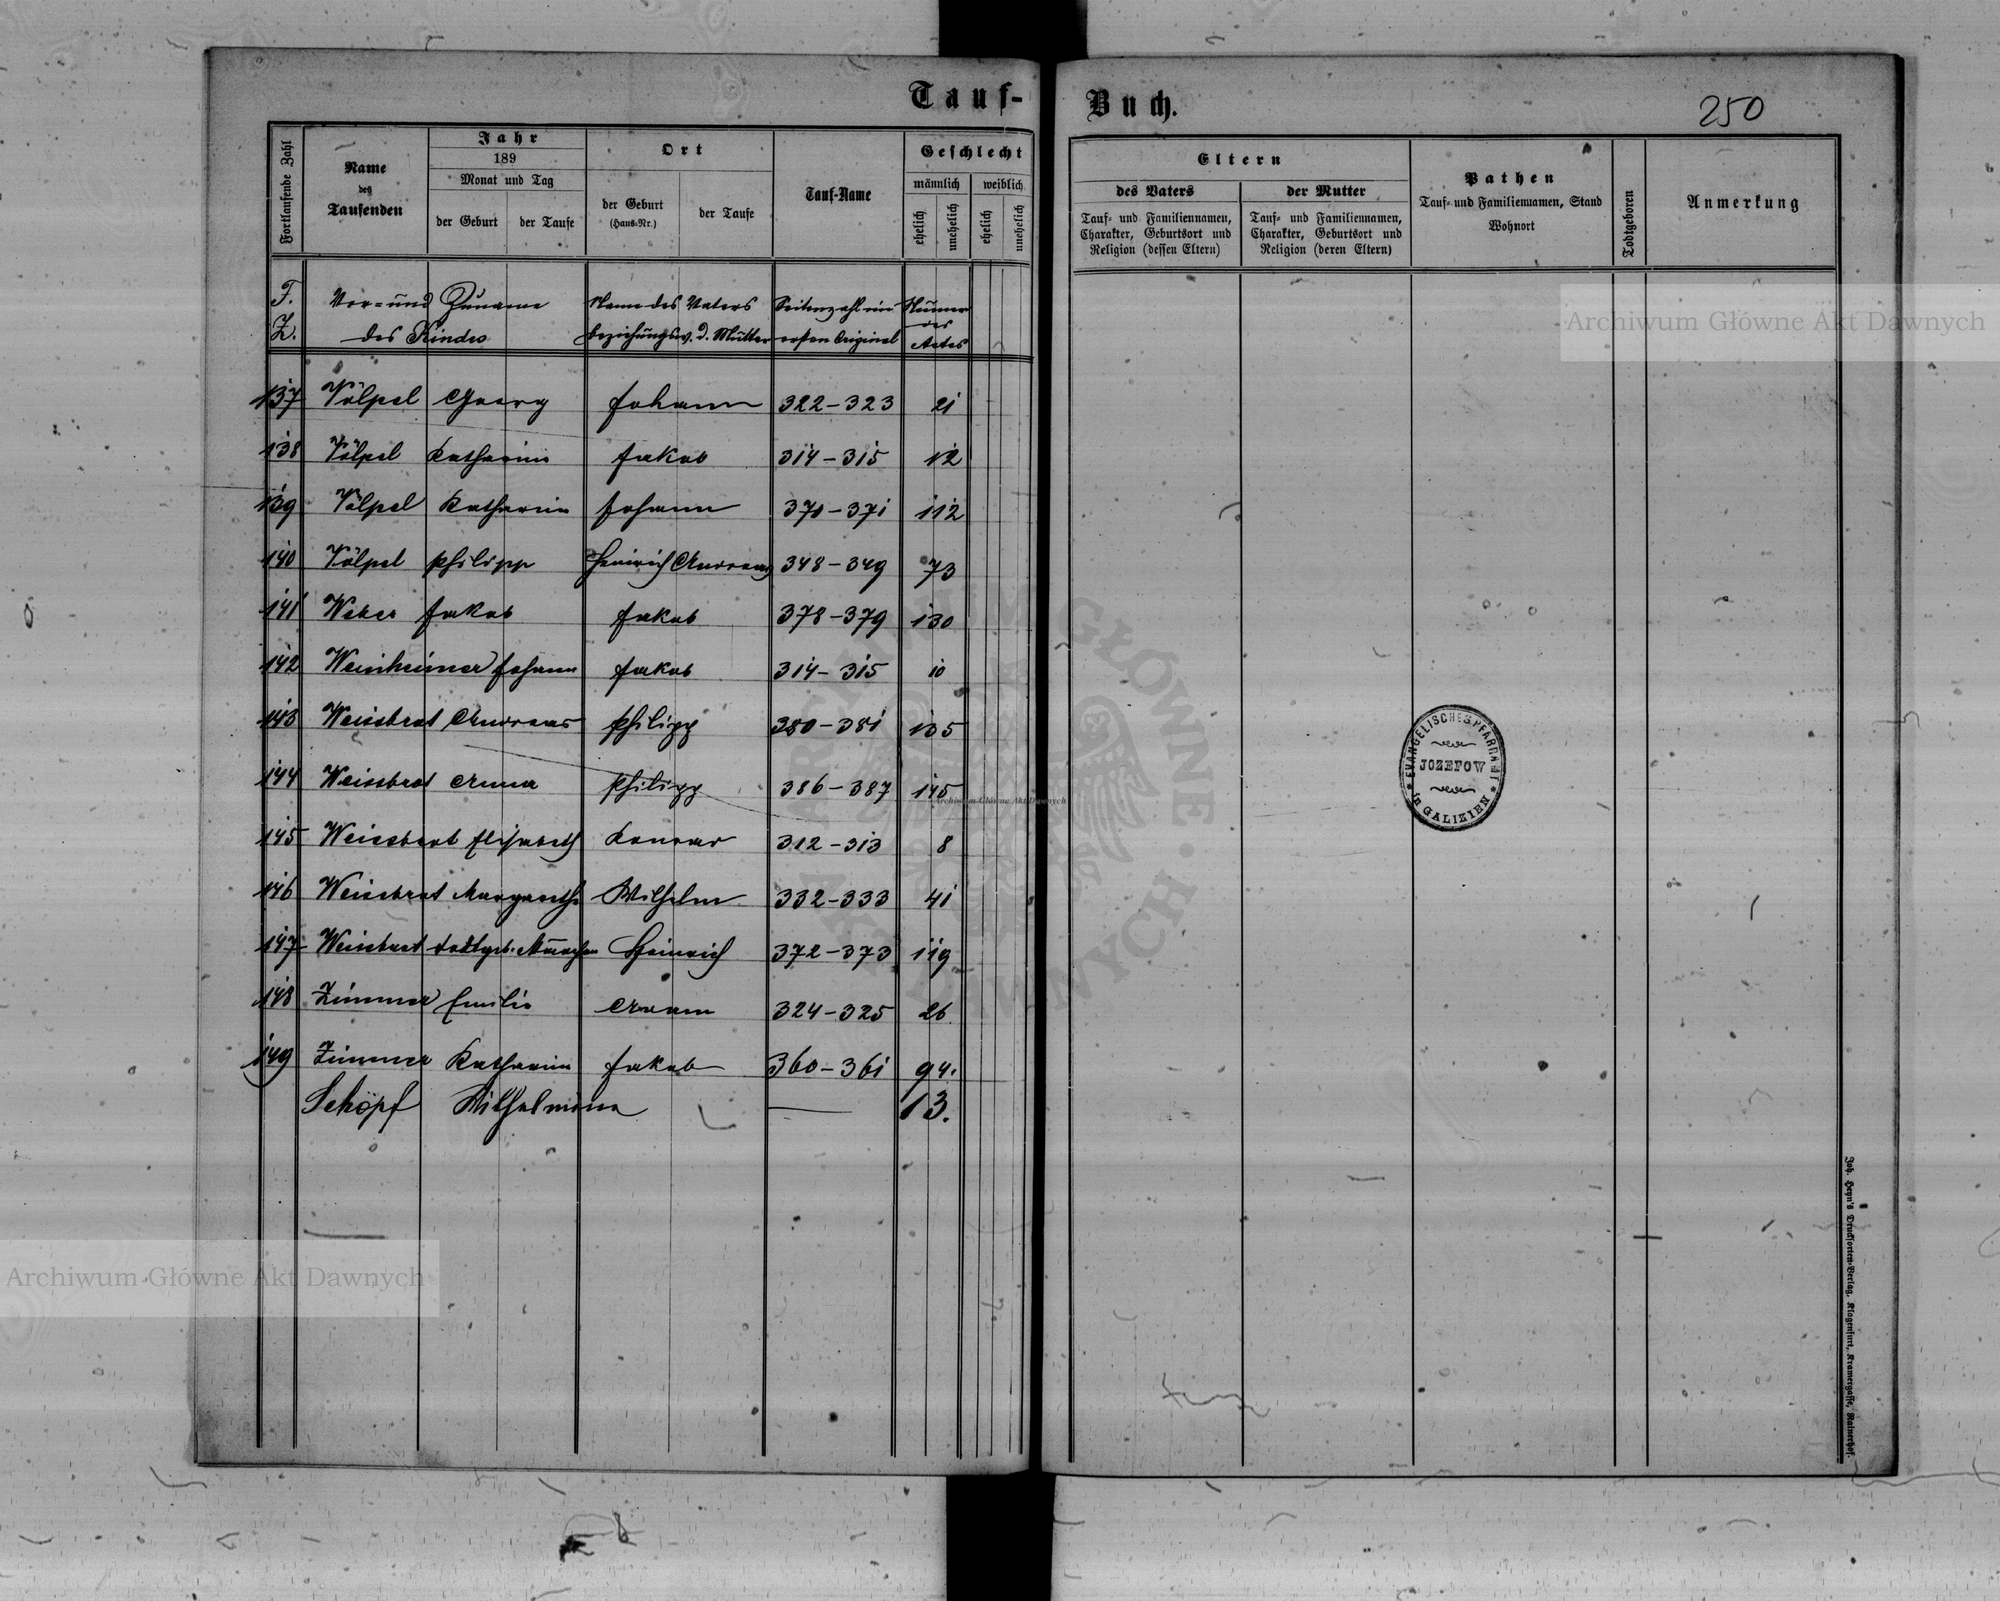 Tauf-
Buch.
250
Fortlaufende Zahl
Name
des
Taufenden
Jahr
189
Monat und Tag
der Geburt
der Taufe
Ort
der Geburt
(Haus-Nr.)
der Taufe
Tauf-Name
Geschlecht
männlich
weiblich
ehelich
unehelich
ehelich
unehelich
Eltern
des Vaters
Tauf- und Familiennamen,
Charakter, Geburtsort und
Religion (dessen Eltern)
der Mutter
Tauf- und Familiennamen,
Charakter, Geburtsort und
Religion (deren Eltern)
Pathen
Tauf- und Familiennamen, Stand
Wohnort
Todtgeboren
Anmerkung
F. Vor- und Zuname Name des Vaters Seitenzahl im Numer
Z. des Kindes beziehungsw. d. Mutter ersten Original des
Actes
137 Völpel Georg Johann 322-323 21
138 Völpel Katharina Jakob 314-315 12
139 Völpel Katharina Johann 370-371 112
140 Völpel Philipp Heinrich Andreas 348-349 73
141 Weber Jakob Jakob 378-379 130
142 Weinheimer Johann Jakob 314-315 10
143 Weissbrot Andreas Philipp 380-381 135
144 Weissbrot Anna Philipp 386-387 145
145 Weissbrot Elisabeth Konrad 312-313 8
146 Weissbrot Margaretha Wilhelm 332-333 41
147 Weissbrot todtgeb. Mädchen Heinrich 372-373 119
148 Zimmer Emilie Adam 324-325 26
149 Zimmer Katharina Jakob 360-361 94.
Schöpf Wilhelmine — 13.
EVANGELISCHES PFARRAMT
JOZEFOW
in GALIZIEN
Joh. Heyn's Drucksorten-Verlag, Klagenfurt, Kramergasse, Rainerhof.
Archiwum Główne Akt Dawnych
Archiwum Główne Akt Dawnych
Archiwum Główne Akt Dawnych
ARCHIWUM GŁÓWNE AKT DAWNYCH